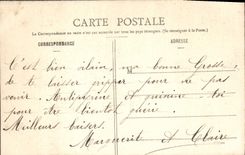 CARTE POSTALE
La Correspondance au recto n'est pas acceptée par tous les pays étrangers (Se renseigner à la Poste.)
CORRESPONDANCE
ADRESSE
C'est bien vilain, ma bonne Grosse,
de te laisser gripper pour ne pas
venir. Antipyrine et quinine - toi
pour être bientôt guérie.
Meilleurs baisers.
Marguerit et Claire